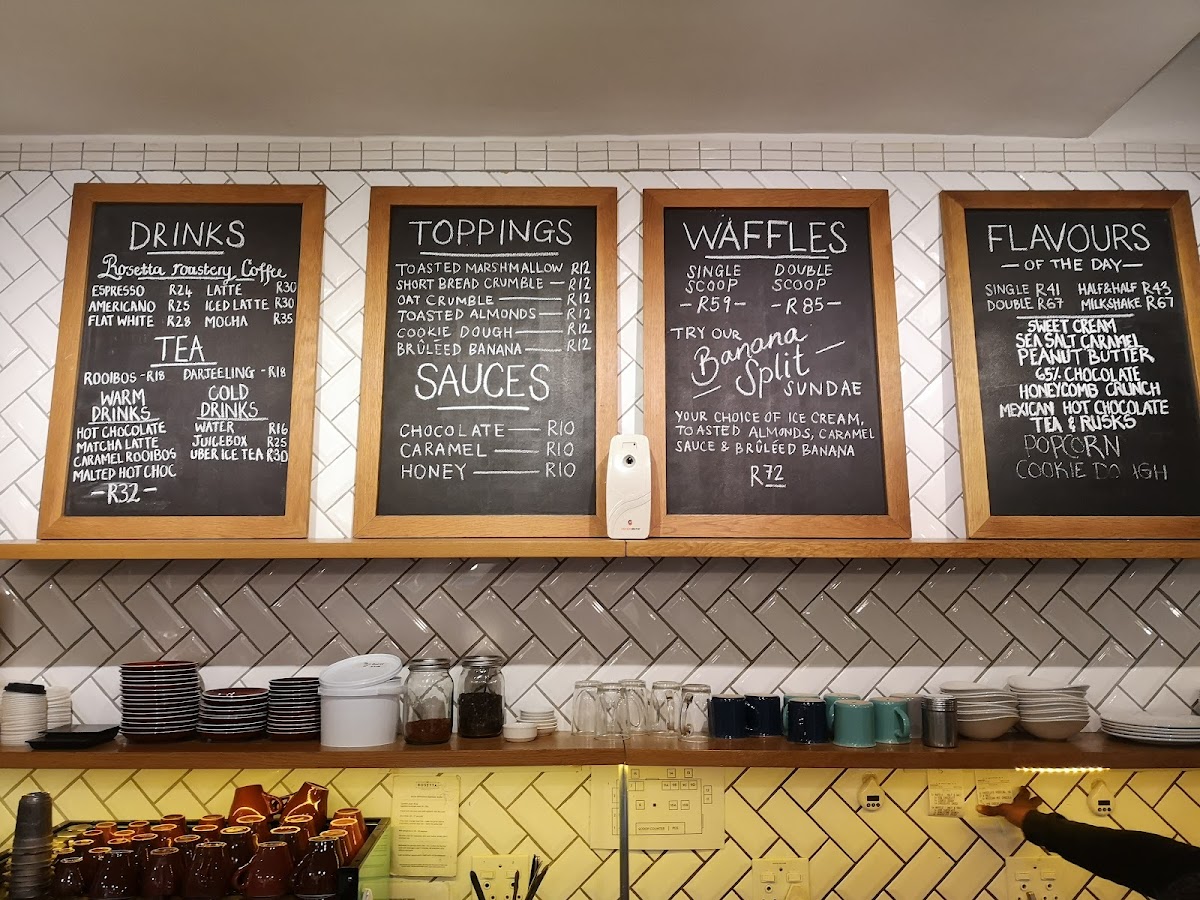 DRINKS
Rosetta roastery Coffee
ESPRESSO R24 LATTE R30
AMERICANO R25 ICED LATTE R30
FLAT WHITE R28 MOCHA R35
TEA
ROOIBOS - R18 DARJEELING - R18
WARM
DRINKS
HOT CHOCOLATE
MATCHA LATTE
CARAMEL ROOIBOS
MALTED HOT CHOC
- R32 -
COLD
DRINKS
WATER R16
JUICEBOX R25
UBER ICE TEA R30
TOPPINGS
TOASTED MARSHMALLOW R12
SHORT BREAD CRUMBLE — R12
OAT CRUMBLE — R12
TOASTED ALMONDS — R12
COOKIE DOUGH — R12
BRÛLÉED BANANA — R12
SAUCES
CHOCOLATE — R10
CARAMEL — R10
HONEY — R10
WAFFLES
SINGLE
SCOOP
- R59 -
DOUBLE
SCOOP
- R85 -
TRY OUR
Banana
Split
SUNDAE
YOUR CHOICE OF ICE CREAM,
TOASTED ALMONDS, CARAMEL
SAUCE & BRÛLÉED BANANA
R72
FLAVOURS
— OF THE DAY —
SINGLE R41 HALF&HALF R43
DOUBLE R67 MILKSHAKE R67
SWEET CREAM
SEA SALT CARAMEL
PEANUT BUTTER
65% CHOCOLATE
HONEYCOMB CRUNCH
MEXICAN HOT CHOCOLATE
TEA & RUSKS
POPCORN
COOKIE DOUGH